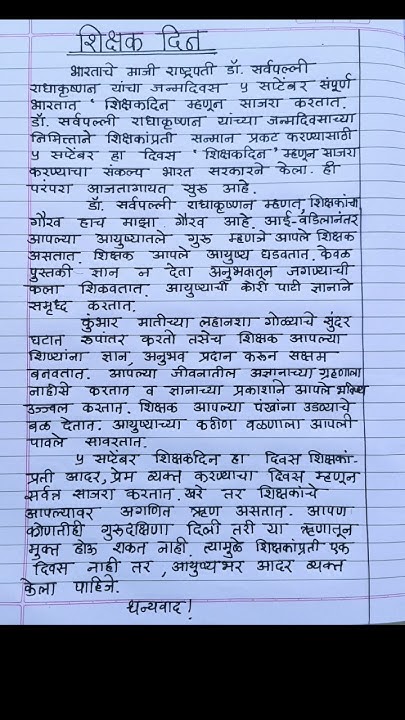 शिक्षक दिन
भारताचे माजी राष्ट्रपती डॉ. सर्वपल्ली
राधाकृष्णन यांचा जन्मदिवस ५ सप्टेंबर संपूर्ण
भारतात ' शिक्षकदिन म्हणून साजरा करतात.
डॉ. सर्वपल्ली राधाकृष्णन यांच्या जन्मदिवसाच्या
निमित्ताने शिक्षकांप्रती सन्मान प्रकट करण्यासाठी
५ सप्टेंबर हा दिवस ' शिक्षकदिन' म्हणून साजरा
करण्याचा संकल्प भारत सरकारने केला. ही
परंपरा आजतागायत सुरु आहे.
डॉ. सर्वपल्ली राधाकृष्णन म्हणत, शिक्षकांचा
गौरव हाच माझा गौरव आहे. आई-वडिलानंतर
आपल्या आयुष्यातले गुरू म्हणजे आपले शिक्षक
असतात. शिक्षक आपले आयुष्य घडवतात. केवळ
पुस्तकी ज्ञान न देता अनुभवातून जगण्याची
कला शिकवतात. आयुष्याची कोरी पाटी ज्ञानाने
समृध्द करतात.
कुंभार मातीच्या लहानशा गोळ्याचे सुंदर
घटात. रुपांतर करतो तसेच शिक्षक आपल्या
शिष्यांना ज्ञान, अनुभव प्रदान करून सक्षम
बनवतात. आपल्या जीवनातील अज्ञानाच्या ग्रहणाला
नाहीसे करतात व ज्ञानाच्या प्रकाशाने आपले भविष्य
उज्ज्वल करतात. शिक्षक आपल्या पंखांना उडण्याचे
बळ देतात. आयुष्याच्या कठीण वळणाला आपली
पावले सावरतात.
५ सप्टेंबर शिक्षकदिन हा दिवस शिक्षकां-
प्रती आदर, प्रेम व्यक्त करण्याचा दिवस म्हणून
सर्वत्र साजरा करतात. खरे तर शिक्षकांचे
आपल्यावर अगणित ऋण असतात. आपण
कोणतीही गुरुदक्षिणा दिली तरी या ऋणातून
मुक्त होऊ शकत नाही. त्यामुळे शिक्षकांप्रती एक
दिवस नाही तर, आयुष्यभर आदर व्यक्त
केला पाहिजे.
धन्यवाद!